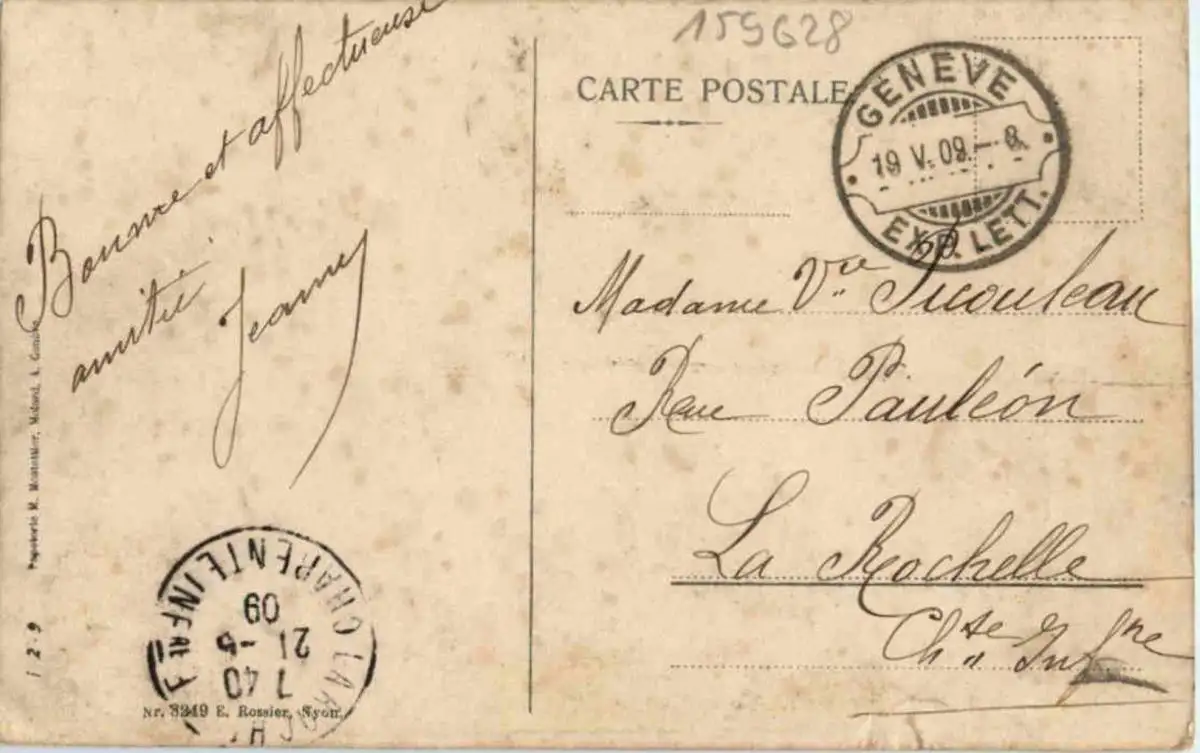 159628
CARTE POSTALE
GENEVE
19 V. 09.- 8
EXP. LETT.
Bonne et affectueuse
amitié
Jeanne
Madame Vve Picouleau
Rue Pauléon
La Rochelle
Chte Infre
Papeterie M.
1 2 9
LA ROCH
CHARENTE INFRE
7 40
21 -5
09
Nr. 3249 E. Rossier, Nyon.